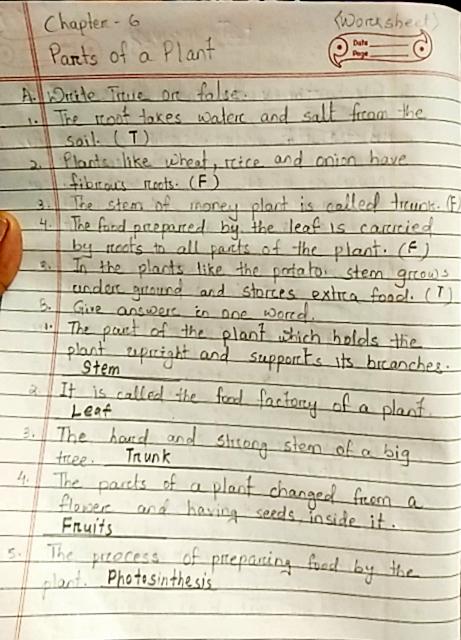 Chapter - 6 (Worksheet)
Parts of a Plant
Date
Page
A. Write True or false.
1. The root takes water and salt from the
soil. (T)
2. Plants like wheat, rice and onion have
fibrous roots. (F)
3. The stem of money plant is called trunk. (F)
4. The food prepared by the leaf is carried
by roots to all parts of the plant. (F)
5. In the plants like the potato stem grows
under ground and stores extra food. (T)
B. Give answers in one word.
1. The part of the plant which holds the
plant upright and supports its branches.
Stem
2. It is called the food factory of a plant.
Leaf
3. The hard and strong stem of a big
tree. Trunk
4. The parts of a plant changed from a
flower and having seeds inside it.
Fruits
5. The process of preparing food by the
plant. Photosinthesis